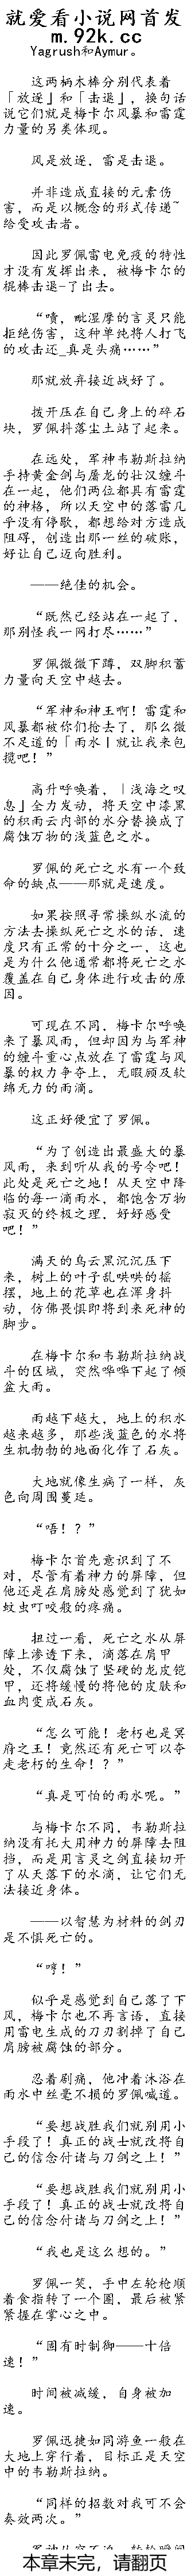 就爱看小说网首发
m.92k.cc
Yagrush和Aymur。
这两柄木棒分别代表着
「放逐」和「击退」，换句话
说它们就是梅卡尔风暴和雷霆
力量的另类体现。
风是放逐，雷是击退。
并非造成直接的元素伤
害，而是以概念的形式传递~
给受攻击者。
因此罗佩雷电免疫的特性
才没有发挥出来，被梅卡尔的
棍棒击退-了出去。
“啧，毗湿摩的言灵只能
拒绝伤害，这种单纯将人打飞
的攻击还_真是头痛……”
那就放弃接近战好了。
拨开压在自己身上的碎石
块，罗佩抖落尘土站了起来。
在远处，军神韦勒斯拉纳
手持黄金剑与屠龙的壮汉缠斗
在一起，他们两位都具有雷霆
的神格，所以天空中的落雷几
乎没有停歇，都想给对方造成
阻碍，创造出那一丝的破账，
好让自己迈向胜利。
——绝佳的机会。
“既然已经站在一起了，
那别怪我一网打尽……”
罗佩微微下蹲，双脚积蓄
力量向天空中越去。
“军神和神王啊！雷霆和
风暴都被你们抢去了，那么微
不足道的「雨水丨就让我来包
揽吧！”
高升呼唤着，｜浅海之叹
息」全力发动，将天空中漆黑
的积雨云内部的水分替换成了
腐蚀万物的浅蓝色之水。
罗佩的死亡之水有一个致
命的缺点——那就是速度。
如果按照寻常操纵水流的
方法去操纵死亡之水的话，速
度只有正常的十分之一，这也
是为什么他通常都将死亡之水
覆盖在自己身体进行攻击的原
因。
可现在不同，梅卡尔呼唤
来了暴风雨，但却因为与军神
的缠斗重心点放在了雷霆与风
暴的权力争夺上，无暇顾及软
绵无力的雨滴。
这正好便宜了罗佩。
“为了创造出最盛大的暴
风雨，来到听从我的号令吧！
此处是死亡之地！从天空中降
临的每一滴雨水，都饱含万物
寂灭的终极之理，好好感受
吧！”
满天的乌云黑沉沉压下
来，树上的叶子乱哄哄的摇
摆，地上的花草也在浑身抖
动，仿佛畏惧即将到来死神的
脚步。
在梅卡和韦勒斯拉纳战
斗的区域，突然哗哗下起了倾
盆大雨。
雨越下越大，地上的积水
越来越多，那些浅蓝色的水将
生机勃勃的地面化作了石灰。
大地就像生病了一样，灰
色向周围蔓延。
“唔！？”
梅卡尔首先意识到了不
对，尽管有着神力的屏障，但
他还是在肩膀处感觉到了犹如
蚊虫叮咬般的疼痛。
扭过一看，死亡之水从屏
障上渗透下来，滴落在肩甲
处，不仅腐蚀了坚硬的龙皮铠
甲，还将缓慢的将他的皮肤和
血肉变成石灰。
“怎么可能！老朽也是冥
府之王！竟然还有死亡可以夺
走老朽的生命！？”
“真是可怕的雨水呢。”
与梅卡尔不同，韦勒斯拉
纳没有托大用神力的屏障去阻
挡，而是用言灵之剑直接切开
了从天落下的水滴，让它们无
法接近身体。
——以智慧为材料的剑刃
是不惧死亡的。
“哼！”
似乎是感觉到自己落了下
风，梅卡尔也不再言语，直接
用雷电生成的刀刃割掉了自己
肩膀被腐蚀的部分。
忍着剧痛，他冲着沐浴在
雨水中丝毫不损的罗佩喊道。
“要想战胜我们就别用小
手段了！真正的战士就改将自
己的信念付诸与刀剑之上！”
“要想战胜我们就别用小
手段了！真正的战士就改将自
己的信念付与刀剑之上！”
“我也是这么想的。”
罗佩一笑，手中左轮枪顺
着食指转了一个圈，最后被紧
紧握在掌心之中。
“固有时制御——十倍
速！”
时间被减缓，自身被加
速。
罗佩迅捷如同游鱼一般在
大地上穿行着，目标正是天空
中的韦勒斯拉纳。
“同样的招数对我可不会
奏效两次。”
本章未完，请翻页